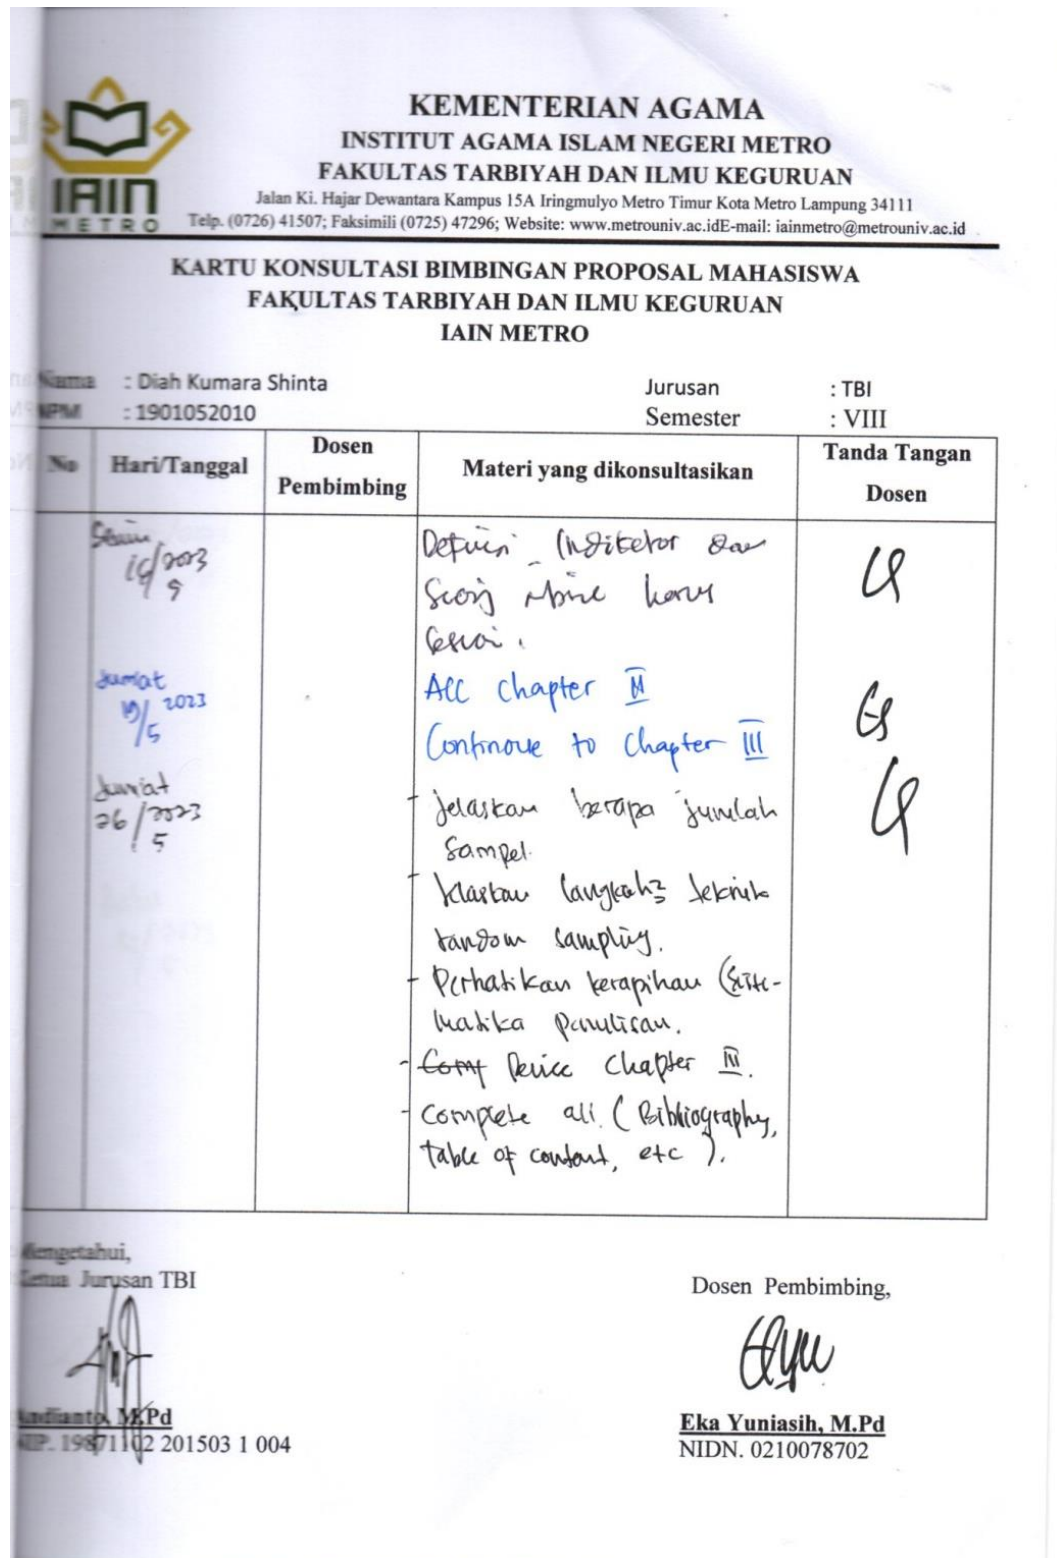 IAIN
METRO
KEMENTERIAN AGAMA
INSTITUT AGAMA ISLAM NEGERI METRO
FAKULTAS TARBIYAH DAN ILMU KEGURUAN
Jalan Ki. Hajar Dewantara Kampus 15A Iringmulyo Metro Timur Kota Metro Lampung 34111
Telp. (0726) 41507; Faksimili (0725) 47296; Website: www.metrouniv.ac.idE-mail: iainmetro@metrouniv.ac.id
KARTU KONSULTASI BIMBINGAN PROPOSAL MAHASISWA
FAKULTAS TARBIYAH DAN ILMU KEGURUAN
IAIN METRO
Nama : Diah Kumara Shinta Jurusan : TBI
NPM : 1901052010 Semester : VIII
No Hari/Tanggal Dosen Pembimbing Materi yang dikonsultasikan Tanda Tangan Dosen
Senin
2023 5
Indikator dan
harus
sesuai.
Jumat
19/5 2023
ACC Chapter II
Continoue to Chapter III
Jum'at
26/5 2023
- Jelaskan berapa jumlah
sampel.
- Jelaskan langkah2 teknik
random sampling.
- Perhatikan kerapihan (Siste-
matika penulisan.
- Chapter
- Complete all (Bibliography,
table of content, etc ).
Mengetahui,
Ketua Jurusan TBI
Andianto, M.Pd
NIP. 19871102 201503 1 004
Dosen Pembimbing,
Eka Yuniasih, M.Pd
NIDN. 0210078702